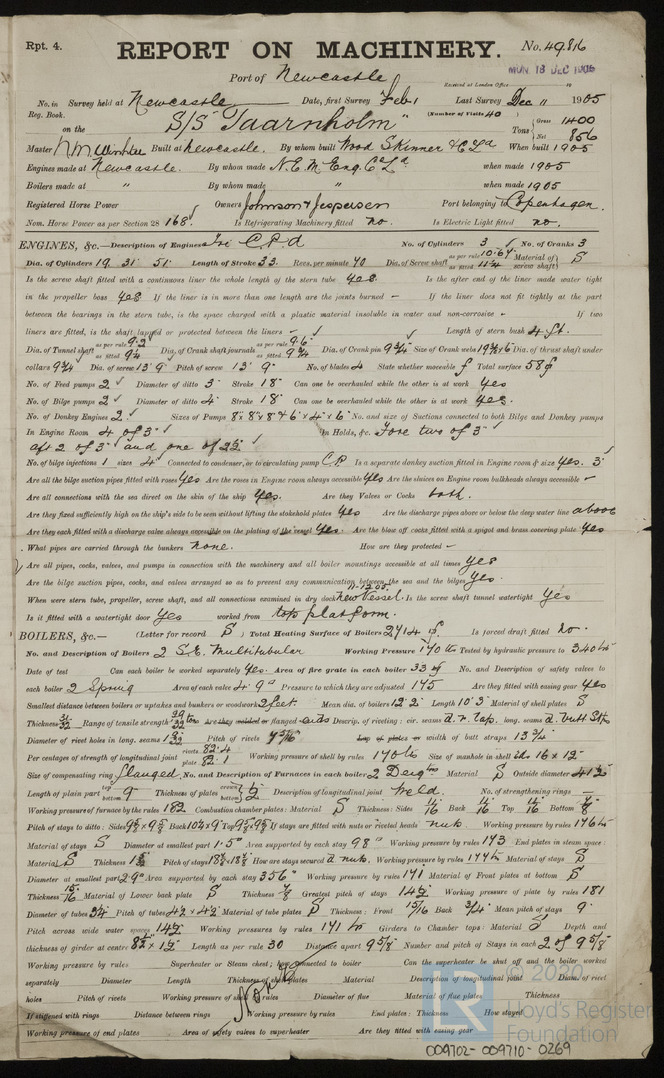 Rpt. 4.
REPORT ON MACHINERY. No. 49816
Port of Newcastle
Received at London Office
MON 18 DEC 1905
No. in Survey held at Newcastle Date, first Survey Feb 1 Last Survey Dec 11 1905
Reg. Book. (Number of Visits 40)
on the S/S "Taarnholm" Tons { Gross 1400 Net 856
Master Built at Newcastle. By whom built Wood Skinner & Co Ld When built 1905
Engines made at Newcastle. By whom made N.E.M. Eng. Co Ld when made 1905
Boilers made at " By whom made " when made 1905
Registered Horse Power Owners Johnson & Jespersen Port belonging to Copenhagen.
Nom. Horse Power as per Section 28 168 Is Refrigerating Machinery fitted no. Is Electric Light fitted no.
ENGINES, &c.—Description of Engines Tri C.P.D No. of Cylinders 3 No. of Cranks 3
Dia. of Cylinders 19. 31. 51 Length of Stroke 33. Revs. per minute 70 Dia. of Screw shaft as per rule 10.64 as fitted 11¼ Material of screw shaft S
Is the screw shaft fitted with a continuous liner the whole length of the stern tube yes. Is the after end of the liner made water tight
in the propeller boss yes If the liner is in more than one length are the joints burned – If the liner does not fit tightly at the part
between the bearings in the stern tube, is the space charged with a plastic material insoluble in water and non-corrosive – If two
liners are fitted, is the shaft lapped or protected between the liners – Length of stern bush 4 ft.
Dia. of Tunnel shaft as per rule 9.2 as fitted 9¾ Dia. of Crank shaft journals as per rule 9.6 as fitted 9¾ Dia. of Crank pin 9¾ Size of Crank webs Dia. of thrust shaft under
collars 9¾ Dia. of screw 13' 9" Pitch of screw 13' 9" No. of blades 4 State whether moveable f Total surface 58
No. of Feed pumps 2 Diameter of ditto 3" Stroke 18" Can one be overhauled while the other is at work yes
No. of Bilge pumps 2 Diameter of ditto 4" Stroke 18" Can one be overhauled while the other is at work yes.
No. of Donkey Engines 2. Sizes of Pumps 8" x 8" x 8" & 6" x 4" x 6" No. and size of Suctions connected to both Bilge and Donkey pumps
In Engine Room 4 of 3" In Holds, &c. Fore two of 3"
aft 2 of 3" and one of 2½"
No. of bilge injections 1 sizes 4" Connected to condenser, or to circulating pump C.P. Is a separate donkey suction fitted in Engine room & size yes. 3"
Are all the bilge suction pipes fitted with roses yes Are the roses in Engine room always accessible yes Are the sluices on Engine room bulkheads always accessible –
Are all connections with the sea direct on the skin of the ship yes. Are they Valves or Cocks both.
Are they fixed sufficiently high on the ship's side to be seen without lifting the stokehold plates yes Are the discharge pipes above or below the deep water line above
Are they each fitted with a discharge valve always accessible on the plating of the vessel yes. Are the blow off cocks fitted with a spigot and brass covering plate yes
What pipes are carried through the bunkers none. How are they protected –
Are all pipes, cocks, valves, and pumps in connection with the machinery and all boiler mountings accessible at all times yes
Are the bilge suction pipes, cocks, and valves arranged so as to prevent any communication between the sea and the bilges yes.
When were stern tube, propeller, screw shaft, and all connections examined in dry dock new vessel. Is the screw shaft tunnel watertight yes
Is it fitted with a watertight door yes worked from top platform.
BOILERS, &c.— (Letter for record S) Total Heating Surface of Boilers 2714 Is forced draft fitted no.
No. and Description of Boilers 2 S.E. Multitubular Working Pressure 170 lb Tested by hydraulic pressure to 340 lb
Date of test Can each boiler be worked separately yes. Area of fire grate in each boiler 33 No. and Description of safety valves to
each boiler 2 Spring Area of each valve 4.9" Pressure to which they are adjusted 175 Are they fitted with easing gear yes
Smallest distance between boilers or uptakes and bunkers or woodwork 2 feet. Mean dia. of boilers 12' 2" Length 10' 3" Material of shell plates S
Thickness Range of tensile strength Are they welded or flanged ends Descrip. of riveting: cir. seams d. r. lap. long. seams d. butt Stp
Diameter of rivet holes in long. seams Pitch of rivets Lap of plates or width of butt straps 13¾
Per centages of strength of longitudinal joint rivets 82.4 plate 82.1 Working pressure of shell by rules 170 lb Size of manhole in shell 16 x 12
Size of compensating ring flanged. No. and Description of Furnaces in each boiler 2 Material S Outside diameter 41½
Length of plain part top bottom 9" Thickness of plates crown bottom ½ Description of longitudinal joint weld. No. of strengthening rings –
Working pressure of furnace by the rules 182 Combustion chamber plates: Material S Thickness: Sides 11/16 Back 11/16 Top 11/16 Bottom 7/8
Pitch of stays to ditto: Sides Back Top If stays are fitted with nuts or riveted heads nuts. Working pressure by rules 176 lb
Material of stays S Diameter at smallest part 1.5" Area supported by each stay 98" Working pressure by rules 173 End plates in steam space:
Material S Thickness Pitch of stays How are stays secured d. nuts. Working pressure by rules Material of stays S
Diameter at smallest part 29" Area supported by each stay 356" Working pressure by rules 171 Material of Front plates at bottom S
Thickness 15/16 Material of Lower back plate S Thickness 7/8 Greatest pitch of stays 14½ Working pressure of plate by rules 181
Diameter of tubes 3¼ Pitch of tubes 4½ x 4½ Material of tube plates S Thickness: Front 15/16 Back 3/4 Mean pitch of stays 9
Pitch across wide water spaces 14½ Working pressures by rules 171 lb Girders to Chamber tops: Material S Depth and
thickness of girder at centre Length as per rule 30 Distance apart 9 5/8 Number and pitch of Stays in each 2 of 9 5/8
Working pressure by rules Superheater or Steam chest; how connected to boiler Can the superheater be shut off and the boiler worked
separately Diameter Length Thickness of shell plates Material Description of longitudinal joint Diam. of rivet
holes Pitch of rivets Working pressure of shell by rules Diameter of flue Material of flue plates Thickness
If stiffened with rings Distance between rings Working pressure by rules End plates: Thickness How stayed
Working pressure of end plates Area of safety valves to superheater Are they fitted with easing gear
None
© 2020
Lloyd's Register
Foundation
009702-009710-0269